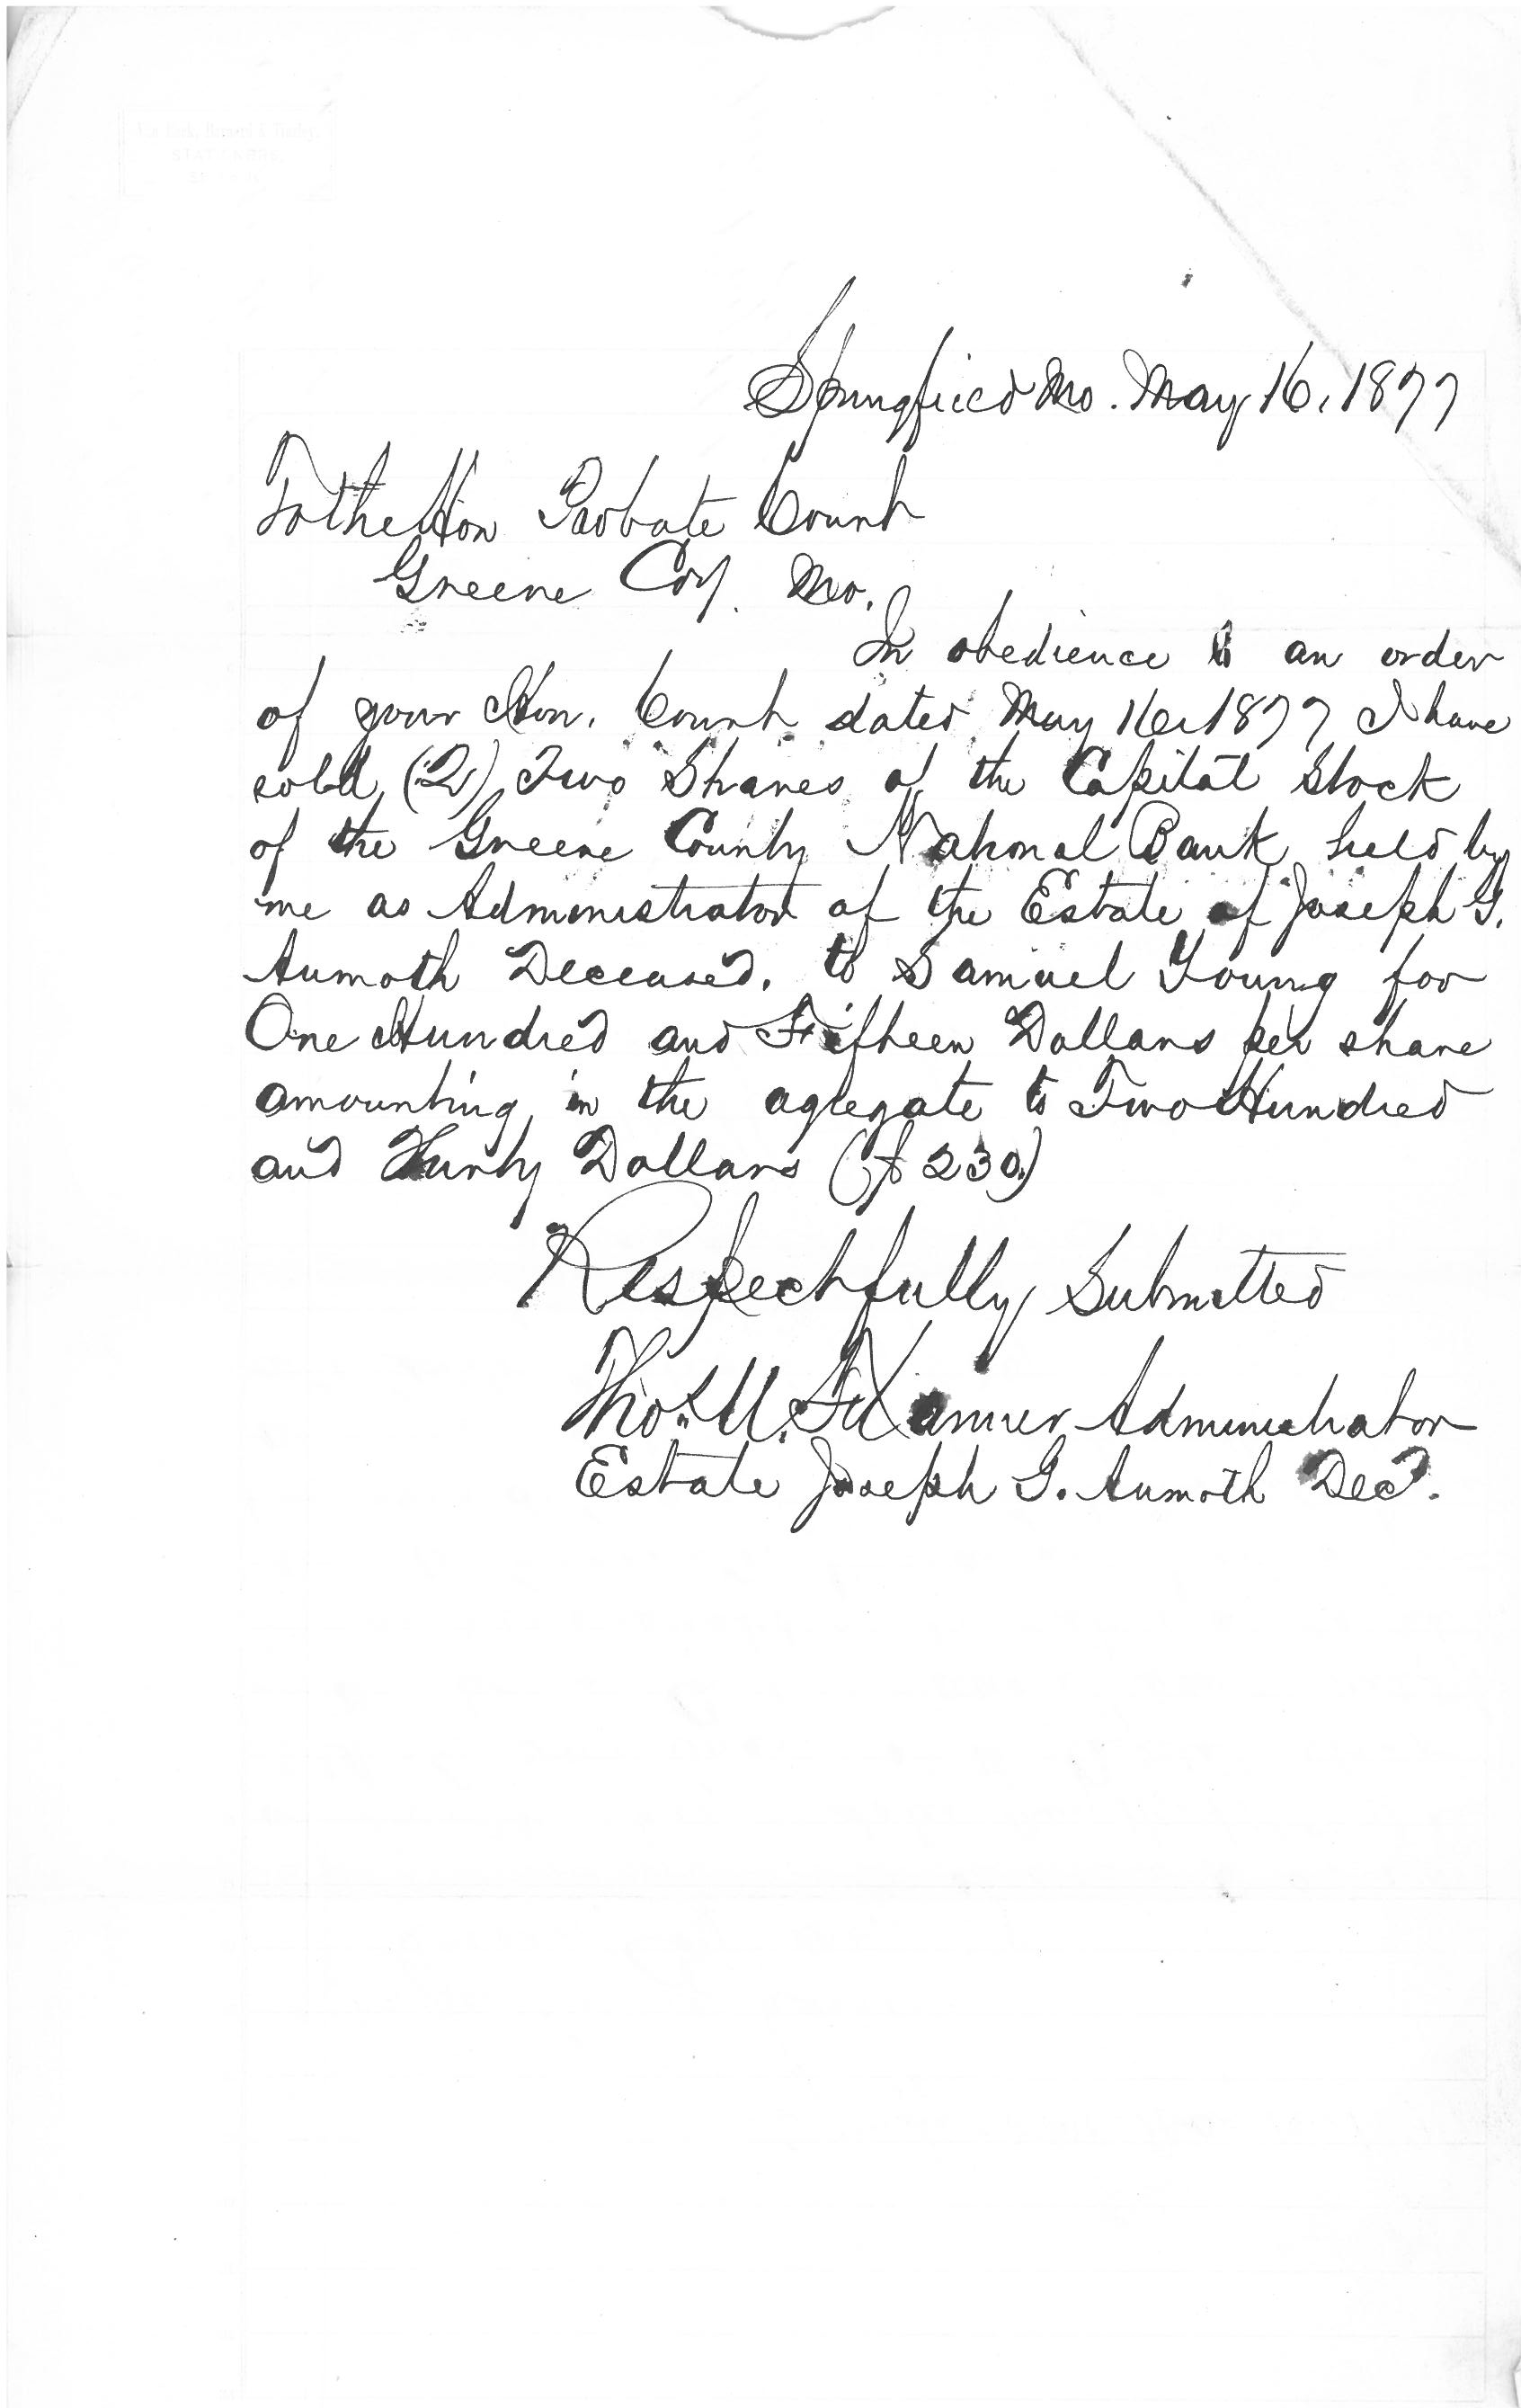 STATIONERS
Springfield Mo. May 16, 1877
To the Hon Probate Court
Greene Coy. Mo.
In obedience to an order
of your Hon. Court dated May 16, 1877 I have
sold (2) Two Shares of the Capital Stock
of the Greene County National Bank held by
me as Administrator of the Estate of Joseph G.
Aumoth Deceased. to Samuel Young for
One Hundred and Fifteen Dollars per share
amounting in the agregate to Two Hundred
and Thirty Dollars ($230.)
Respectfully Submitted
Thos. U. Administrator
Estate Joseph G. Aumoth Decd.